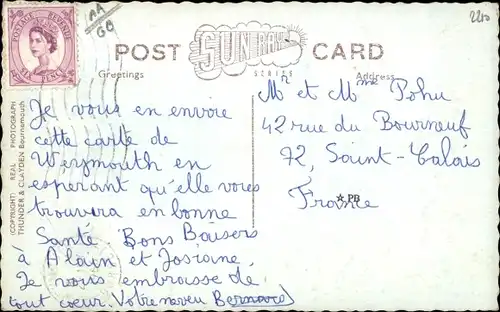 POSTAGE REVENUE
SIX PENCE
AA
GB
2210
POST SUNRAY CARD
SERIES
Greetings
Address
COPYRIGHT REAL PHOTOGRAPH
THUNDER & CLAYDEN Bournemouth
Je vous en envoie
cette carte de
Weymouth en
esperant qu'elle vous
trouvera en bonne
Santé. Bons Baisers
à Alain et Josiane,
Je vous embrasse de
tout coeur. Votre neveu Bernard
Mr et Mme Pohu
42 rue du Bourneuf
72, Saint-Calais
France
★PB